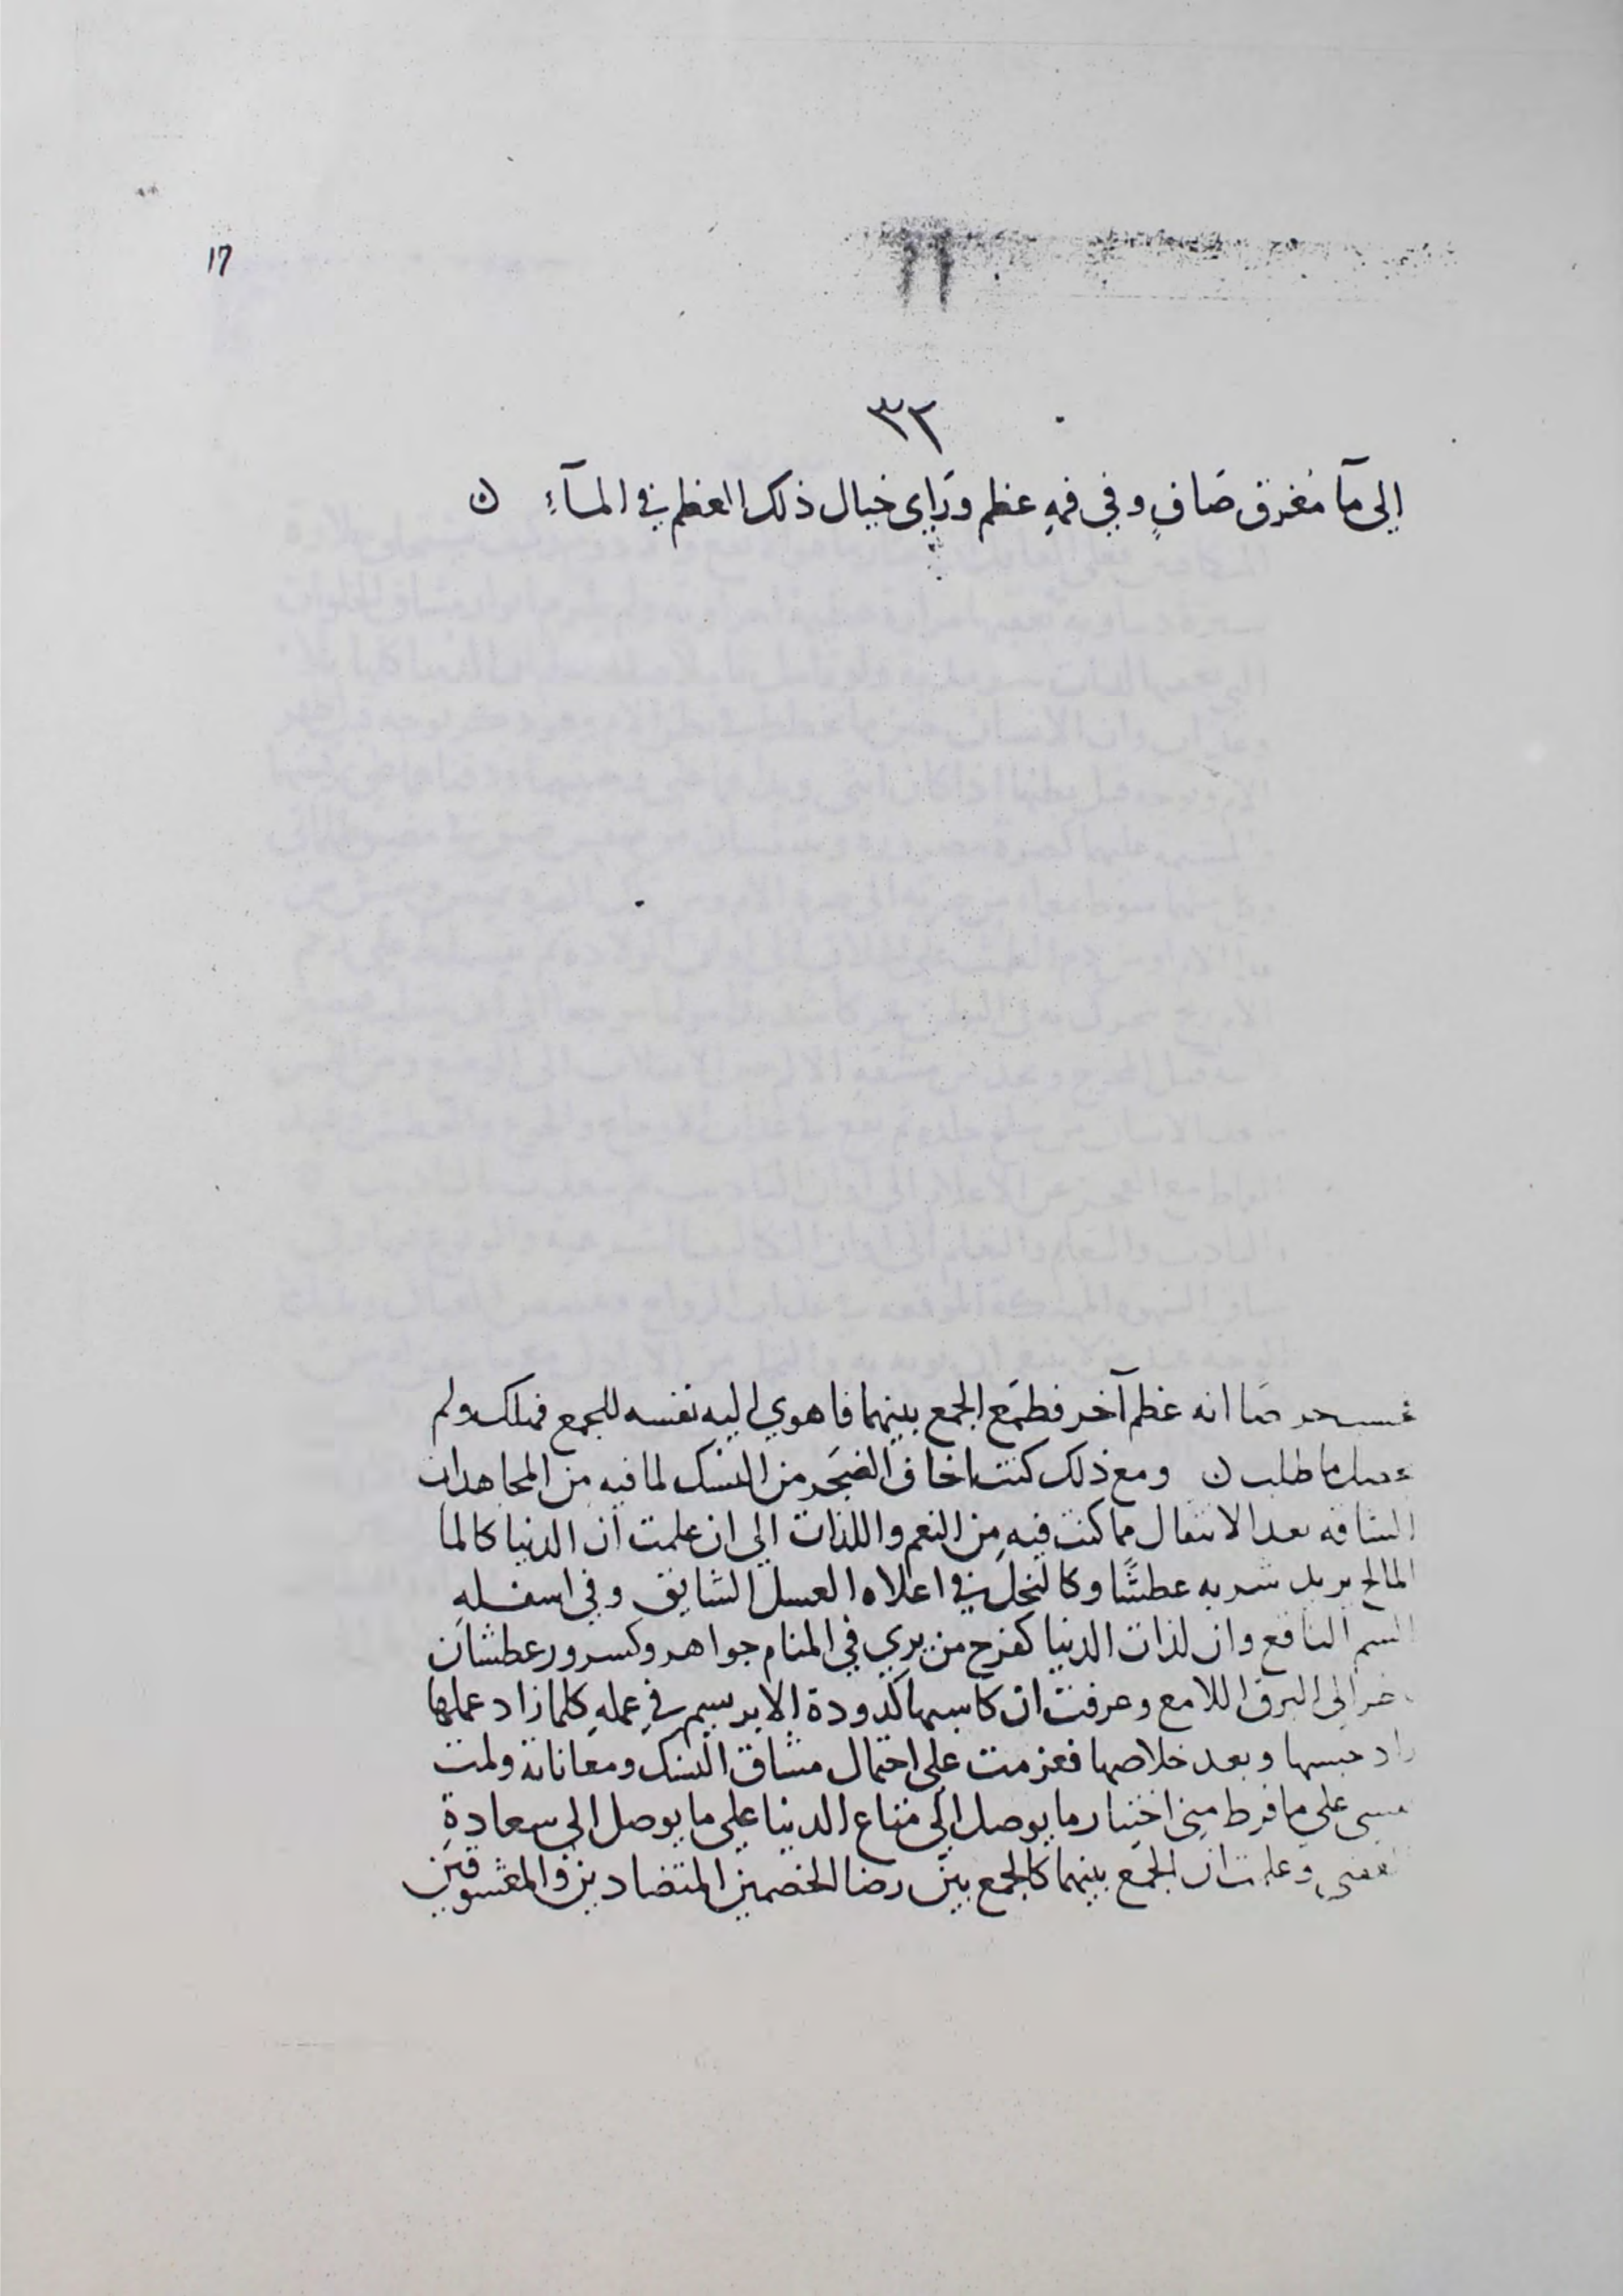 17
٣٢
الى مآ مغرق صَافٍ وفي فمهِ عظم ورَاي خيال ذلك العظم في المآءِ ن
انه عظم آخر فطمَع الجمع بينهما فاهوي اليه نفسه للجمع فهلك ولم
ما طلب ن ومع ذلك كنت اخاف الضجَر من النسك لما فيه من المجاهدات
الشاقه بعد الانتقال مما كنت فيهِ مِن النعم واللذات الي ان علمت ان الدنيا كالما
المالح يزيد شربه عطشًا وكالنحل في اعلاه العسل الشايق وفي اسفلهِ
السم الناقع وان لذات الدنيا كفرح من يري في المنام جواهر وكسرور عطشان
الي البرق اللامع وعرفت ان كاسبها كدودة الابريسم في عملهِ كلما زاد عملها
زاد حبسها وبعد خلاصها فعزمت على احتمال مشاق النسك ومعاناته ولمت
نفسي على ما فرط مني اختيار ما يوصل الي متاع الدنيا على ما يوصل الي سعادةِ
وعلمت ان الجمَع بينهما كالجمع بيَن رضا الخصمين المتضادين والمعشوقيَن